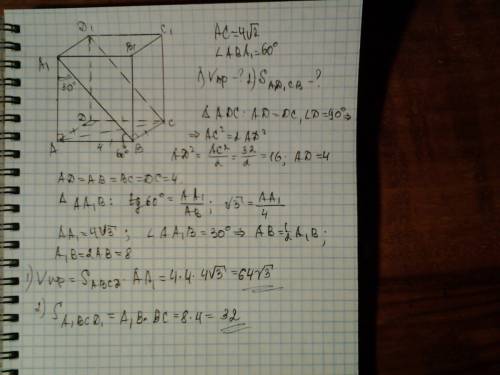 D₁ C₁
A₁ B₁
30°
D C
A 4 60° B
AC=4√2
∠ABA₁=60°
1) Vпр -? 2) S A₁D₁CB -?
Δ ADC: AD=DC, ∠D=90° ⇒
⇒ AC²=2AD²
AD²= AC²/2 = 32/2 = 16; AD=4
AD=AB=BC=DC=4
Δ AA₁B: tg 60° = AA₁/AB; √3 = AA₁/4
AA₁=4√3; ∠AA₁B=30° ⇒ AB=½A₁B;
A₁B=2AB=8
1) Vпр = S ABCD · AA₁ = 4·4·4√3 = 64√3
2) S A₁BCD₁ = A₁B · BC = 8·4 = 32